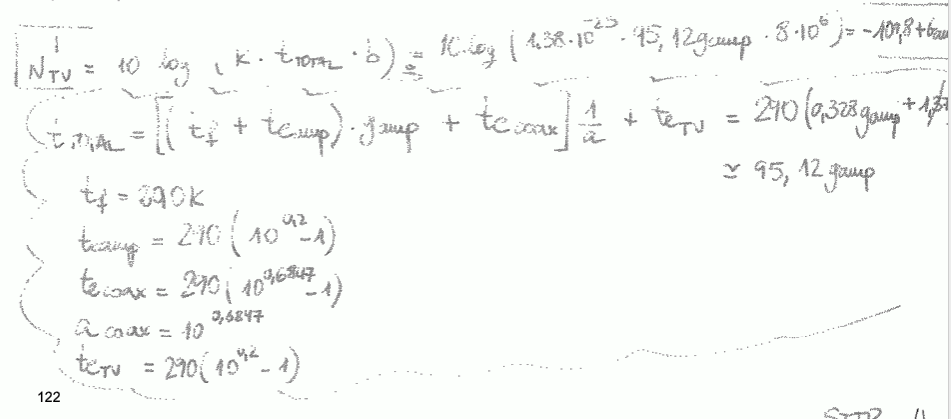 N_TV = 10 log (k · t_TOTAL · b) ≃ 10 log (1,38·10^-23 · 95,12 gamp · 8·10^6) = -109,8 + Gam
t_TOTAL = [(t_f + te_amp) · gamp + te_coax] 1/a + te_TV = 290 (0,328 gamp + 1,37
≃ 95,12 gamp
t_f = 290K
te_amp = 290 (10^0,2 - 1)
te_coax = 290 (10^0,6847 - 1)
a coax = 10^0,6847
te_TV = 290 (10^0,2 - 1)
122